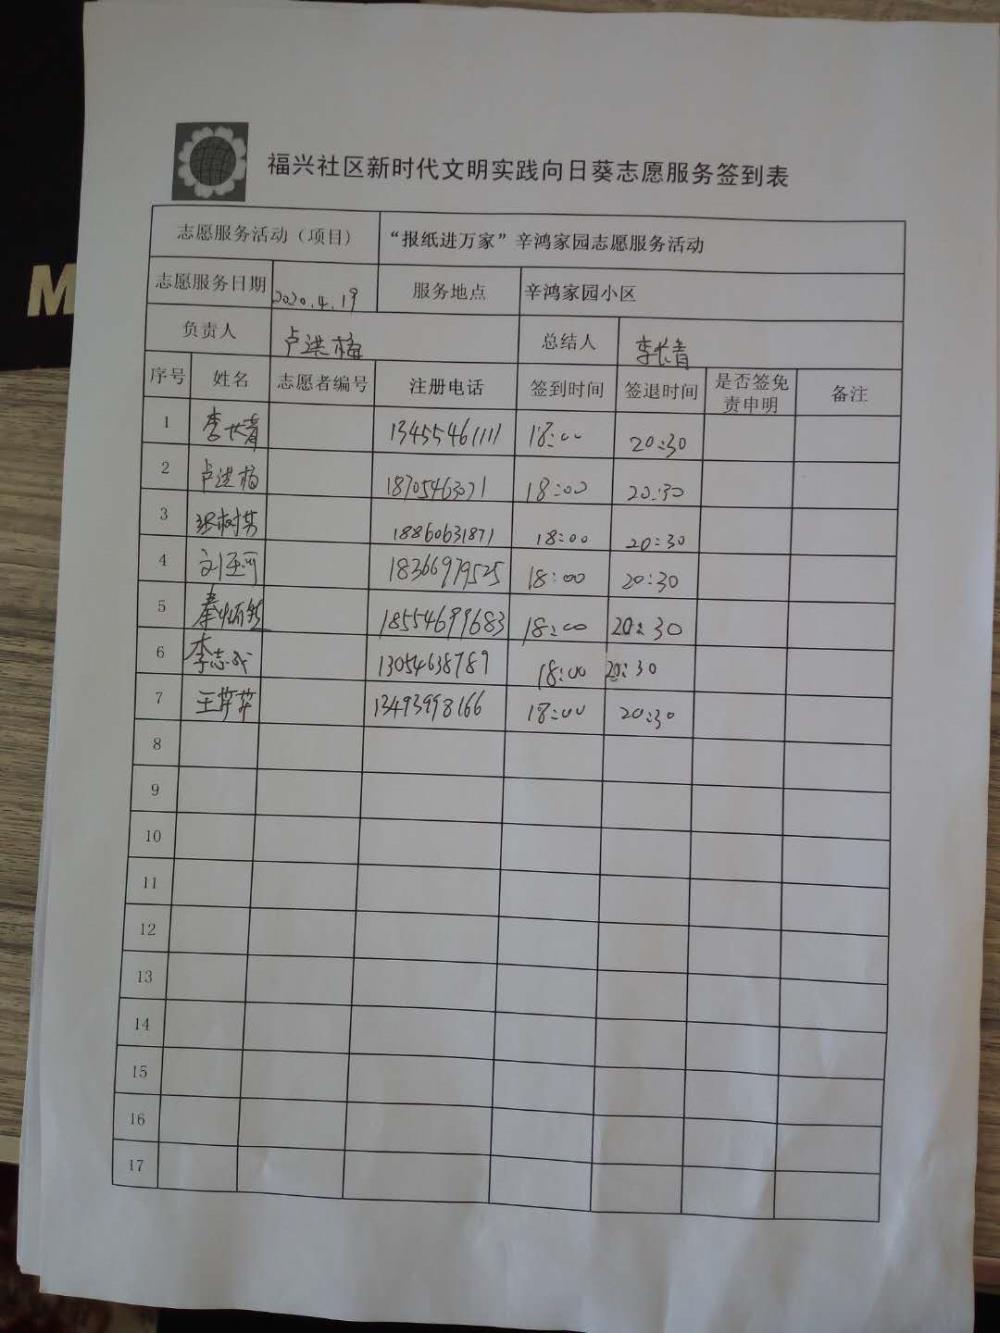 福兴社区新时代文明实践向日葵志愿服务签到表
志愿服务活动（项目） “报纸进万家”辛鸿家园志愿服务活动
志愿服务日期 2020.4.19 服务地点 辛鸿家园小区
负责人 卢洪梅 总结人 李长青
序号 姓名 志愿者编号 注册电话 签到时间 签退时间 是否签免责申明 备注
1 李长青 13455461111 18:00 20:30
2 卢洪梅 18705463071 18:00 20:30
3 18860631871 18:00 20:30
4 18366979525 18:00 20:30
5 18554699683 18:00 20:30
6 李志成 13054638789 18:00 20:30
7 王萍萍 13493998166 18:00 20:30
8
9
10
11
12
13
14
15
16
17
M